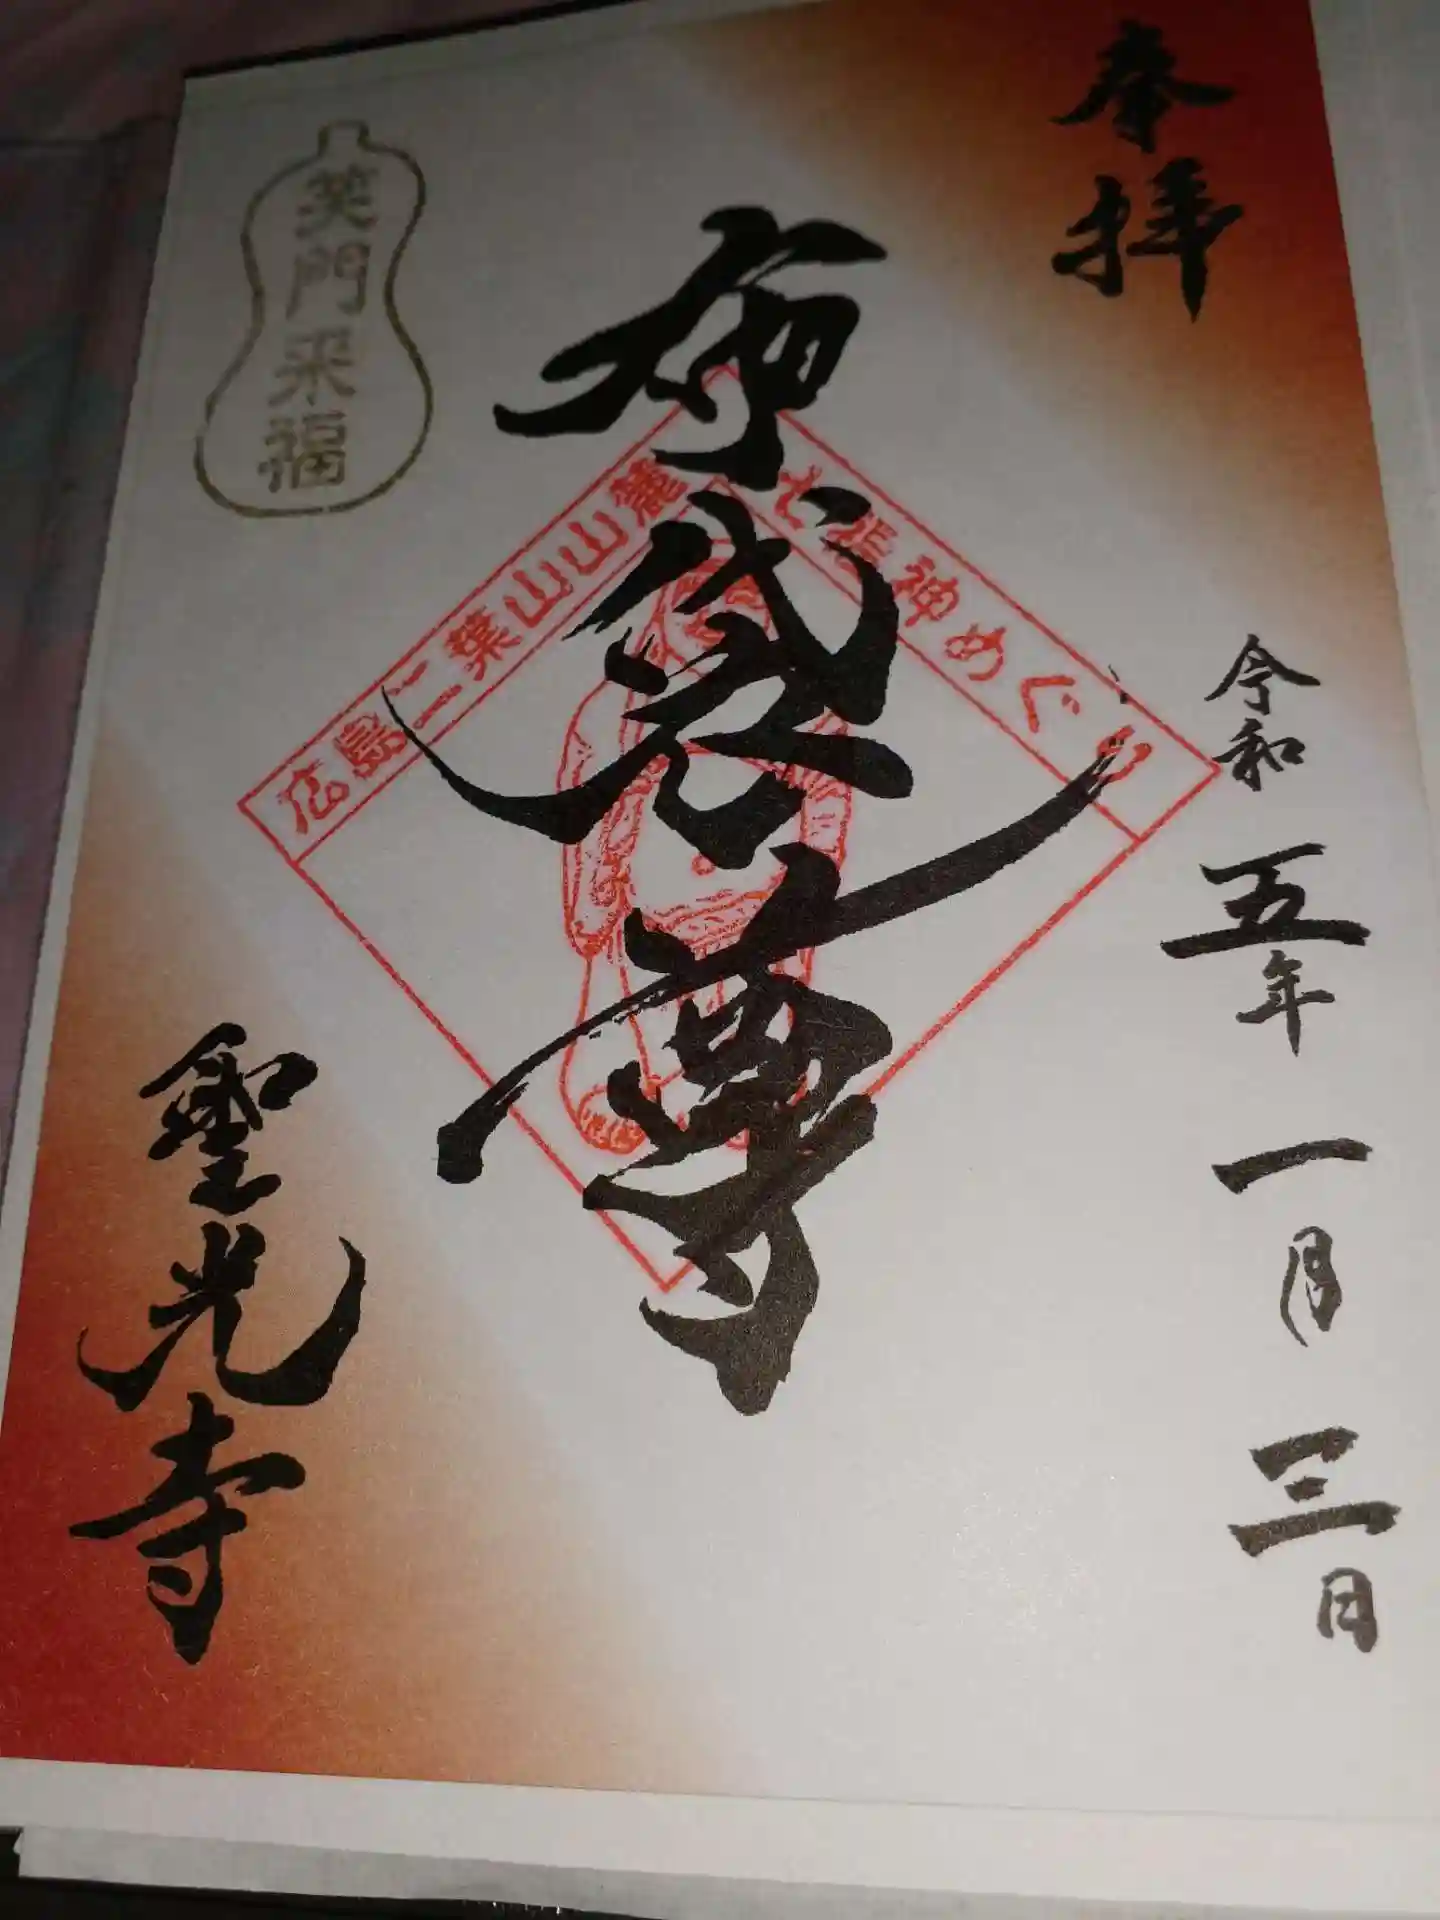 奉拝
令和五年一月三日
布袋尊
広島二葉山山麓
七福神めぐり
笑門来福
聖光寺